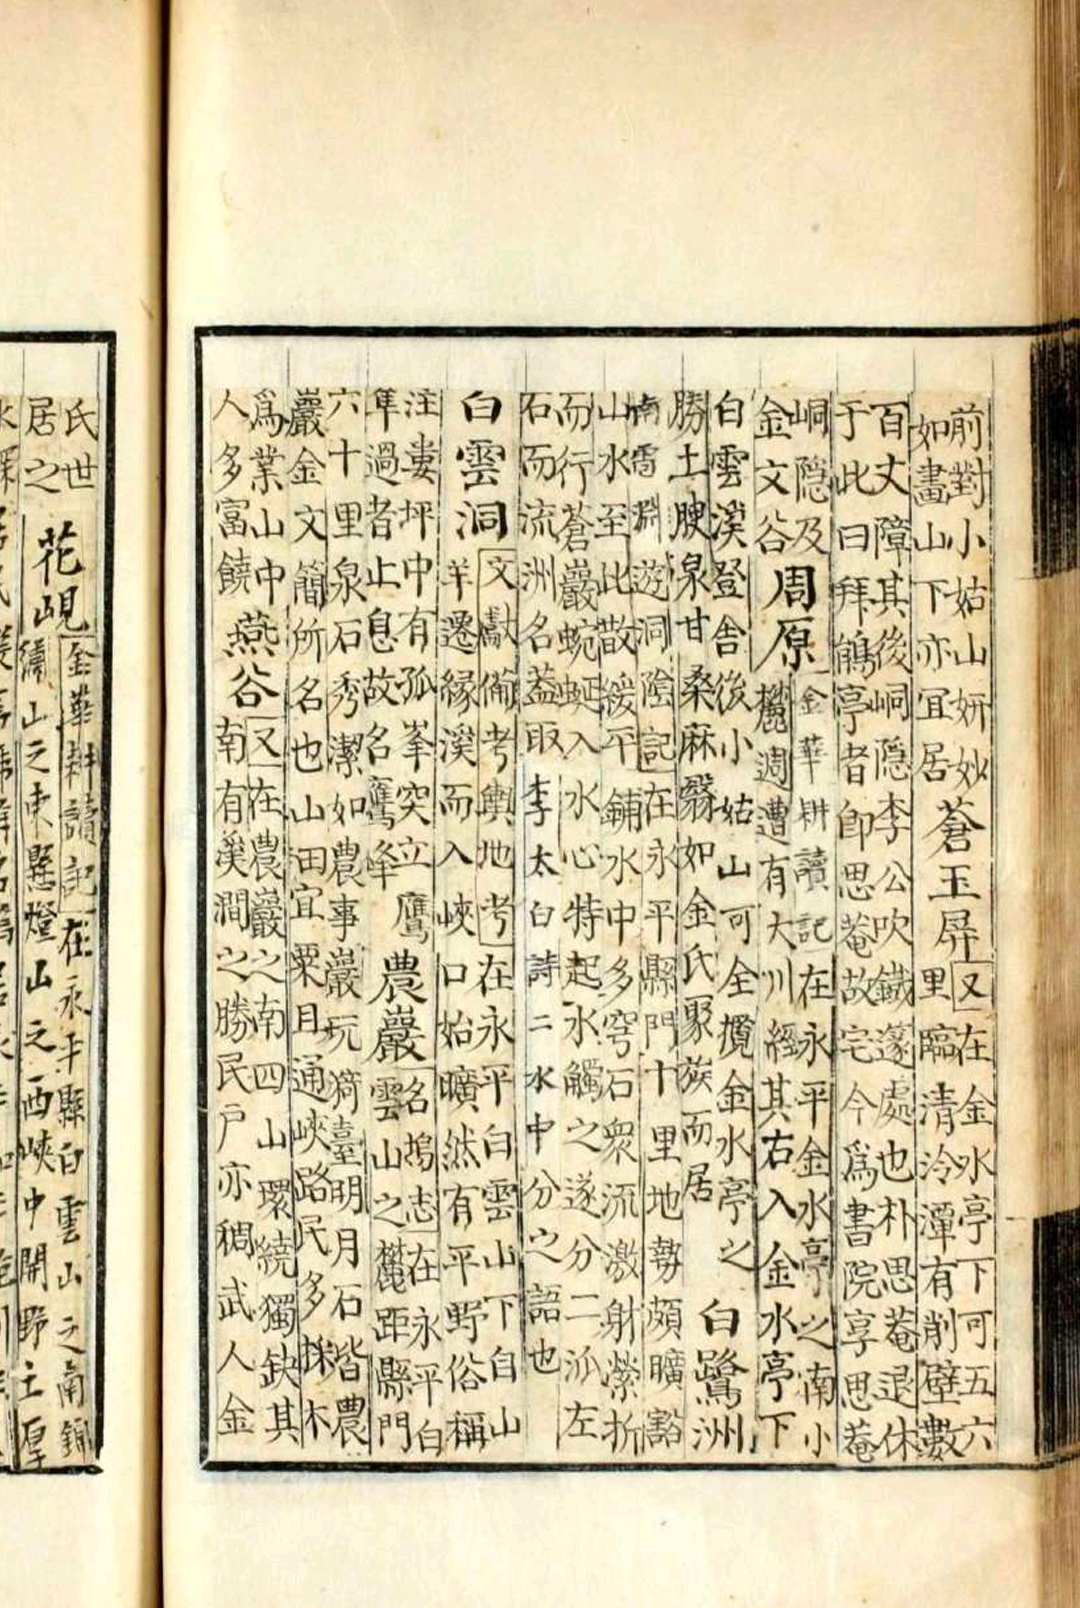 前對小姑山妍妙
如畫山下亦宜居
蒼玉屏
又在金水亭下可五六
里臨清泠潭有削壁數
百丈障其後峒隱李公吹鐵篴處也朴思菴退休
于此曰拜鶴亭者卽思菴故宅今爲書院享思菴
峒隱及
金文谷
周原
金華耕讀記在永平金水亭之南小
麓週遭有大川經其右入金水亭下
白雲溪登舍後小姑山可全攬金水亭之
勝土腴泉甘桑麻翳如金氏聚族而居
白鷺洲
南霅淵遊洞陰記在永平縣門十里地勢頗曠豁
山水至此散緩平鋪水中多穹石衆流激射縈折
而行蒼巖蜿蜒入水心特起水觸之遂分二派左
石而流洲名葢取李太白詩二水中分之語也
白雲洞
文獻備考輿地考在永平白雲山下自山
羊遷緣溪而入峽口始曠然有平野俗稱
注婁坪中有孤峯突立鷹
隼過者止息故名鷹峰
農巖
名塢志在永平白
雲山之麓距縣門
六十里泉石秀潔如農事巖玩猗臺明月石皆農
巖金文簡所名也山田宜粟且通峽路民多採木
爲業山中
人多富饒
燕谷
又在農巖之南四山環繞獨缺其
南有溪澗之勝民戶亦稠武人金
氏世
居之
花峴
金華耕讀記在永平縣白雲山之南錦
繡山之東懸燈山之西峽中開野土厚